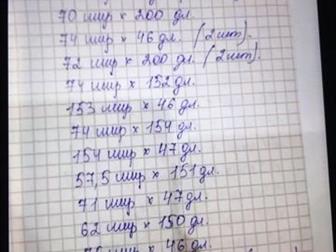 70 шир × 200 дл.
74 шир × 46 дл. (2шт).
72 шир × 200 дл. (2шт).
74 шир × 152 дл.
153 шир × 46 дл.
74 шир × 154 дл.
154 шир × 47 дл.
57,5 шир × 151 дл.
71 шир × 47 дл.
62 шир × 150 дл.
шир × 46 дл.